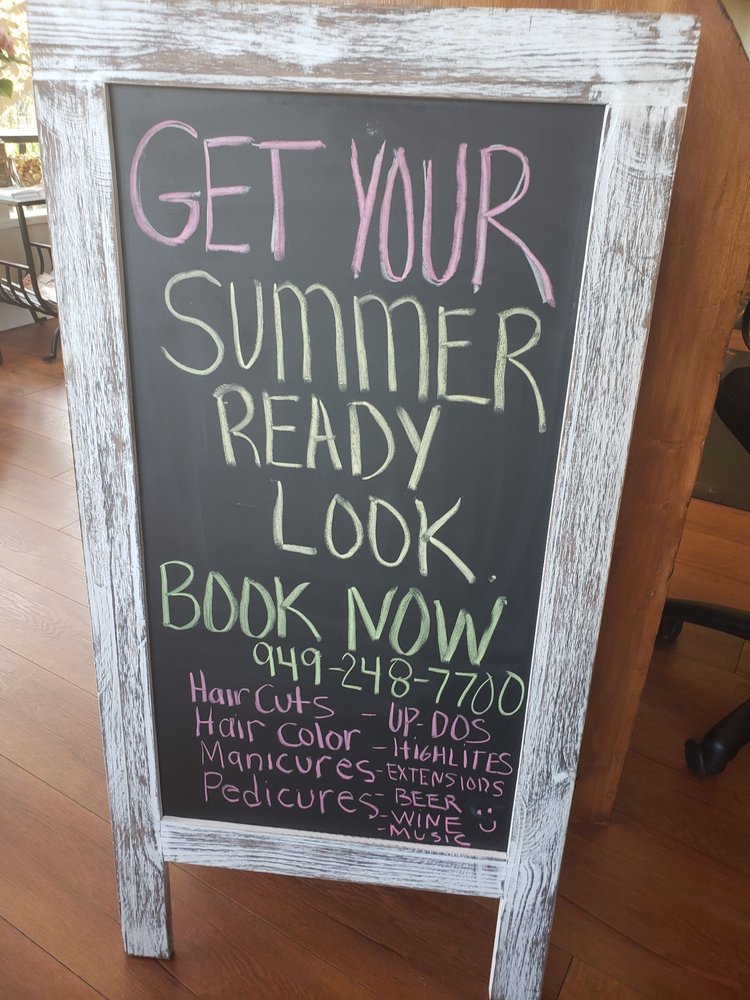 GET YOUR
SUMMER
READY
LOOK.
BOOK NOW
949-248-7700
Hair Cuts - UP-DOS
Hair Color - HIGHLITES
Manicures - EXTENSIONS
Pedicures - BEER
- WINE
- MUSIC